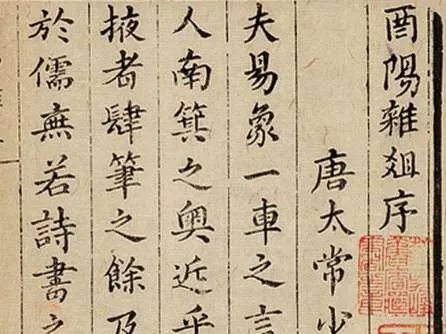 酉陽雜爼序
唐太常少
夫易象一車之言
人南箕之奥近乎
掖者肆筆之餘及
於儒無若詩書之